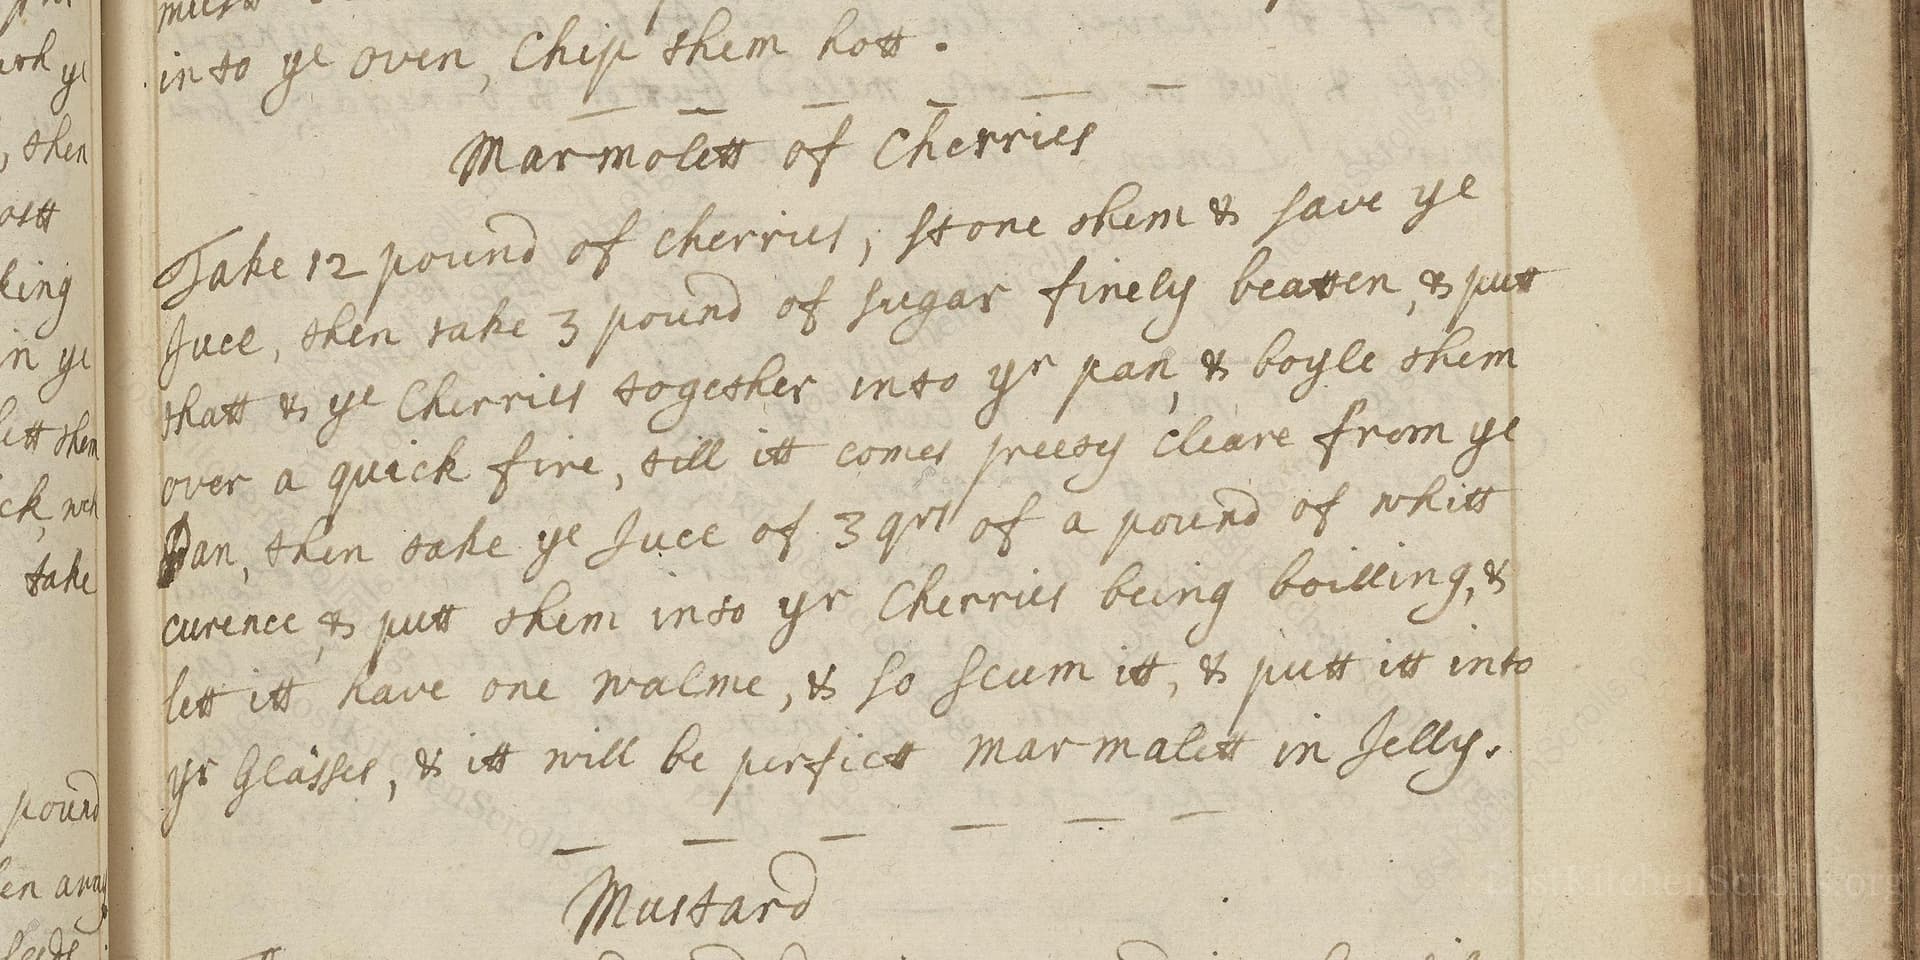 into ye oven, Chip them hott.
Marmolett of Cherries
Take 12 pound of cherries, stone them & save ye
Juce, then take 3 pound of sugar finely beatten, & putt
thatt & ye Cherries together into yr pan, & boyle them
over a quick fire, till itt comes preety cleare from ye
Pan, then take ye Juce of 3 qrs of a pound of whitt
curence, & putt them into yr Cherries being boilling, &
lett itt have one walme, & so scum itt, & putt itt into
yr Glasses, & itt will be perfictt marmalett in Jelly.
Mustard
ye
then
king
in ye
lett them
take
pound
LostKitchenScrolls.org